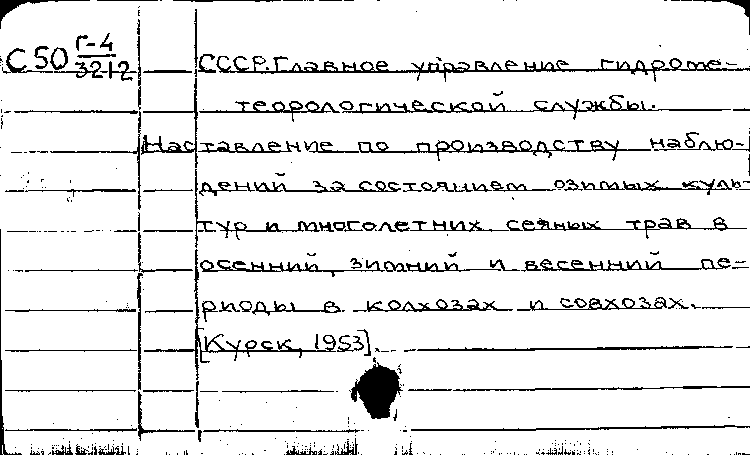 С50 Г-4/3212
СССР. Главное управление гидроме-
теорологической службы.
Наставление по производству наблю-
дений за состоянием озимых куль-
тур и многолетних сеяных трав в
осенний, зимний и весенний пе-
риоды в колхозах и совхозах.
[Курск, 1953].